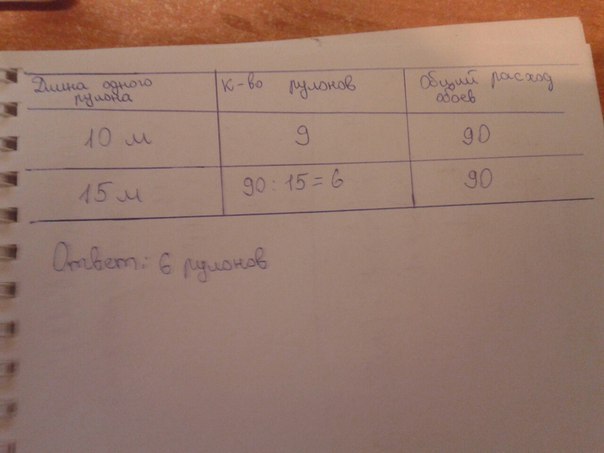 Длина одного рулона
К-во рулонов
Общий расход обоев
10 м 9 90
15 м 90 : 15 = 6 90
Ответ: 6 рулонов